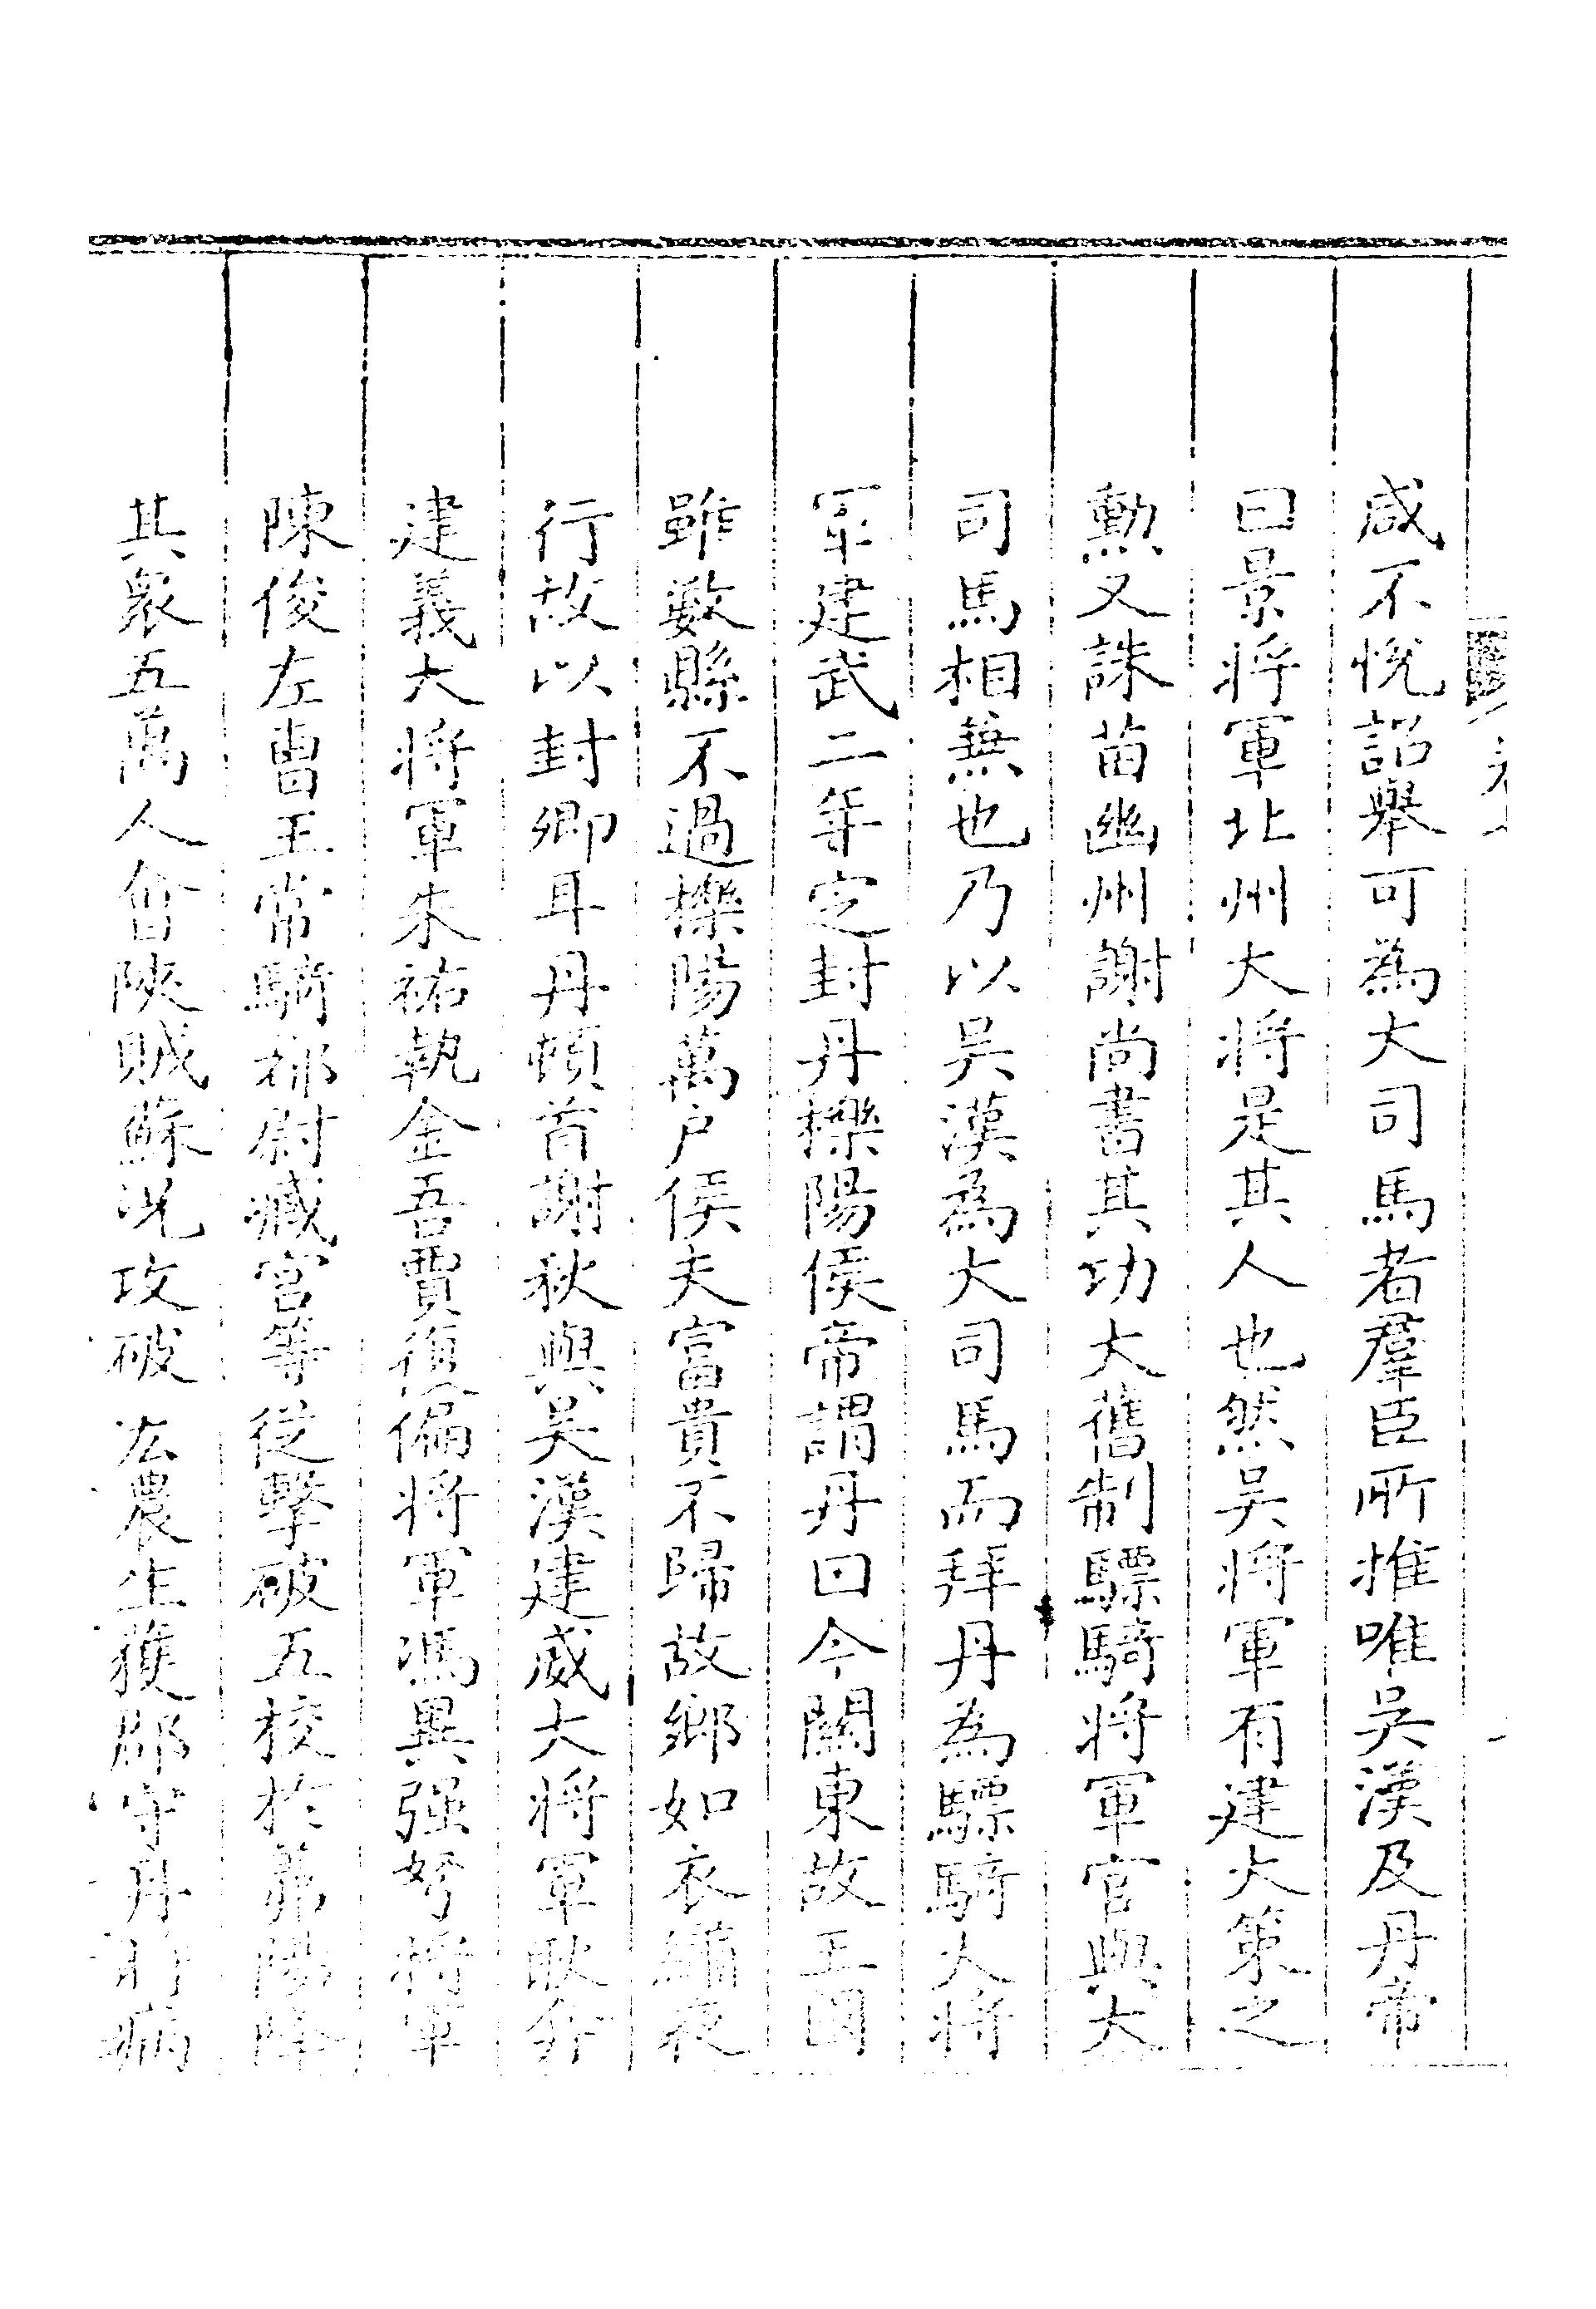 咸不悅詔舉可為大司馬者羣臣所推唯吳漢及丹帝
曰景將軍北州大將是其人也然吳將軍有建大策之
勳又誅苗幽州謝尚書其功大舊制驃騎將軍官與大
司馬相兼也乃以吳漢為大司馬而拜丹為驃騎大將
軍建武二年定封丹櫟陽侯帝謂丹曰今關東故王國
雖數縣不過櫟陽萬戶侯夫富貴不歸故鄉如衣繡夜
行故以封卿耳丹頓首謝秋與吳漢建威大將軍耿弇
建義大將軍朱祐執金吾賈復偏將軍馮異强弩將軍
陳俊左曹王常騎都尉臧宮等從擊破五校於羛陽降
其衆五萬人會陝賊蘇況攻破𢎞農生獲郡守丹時病